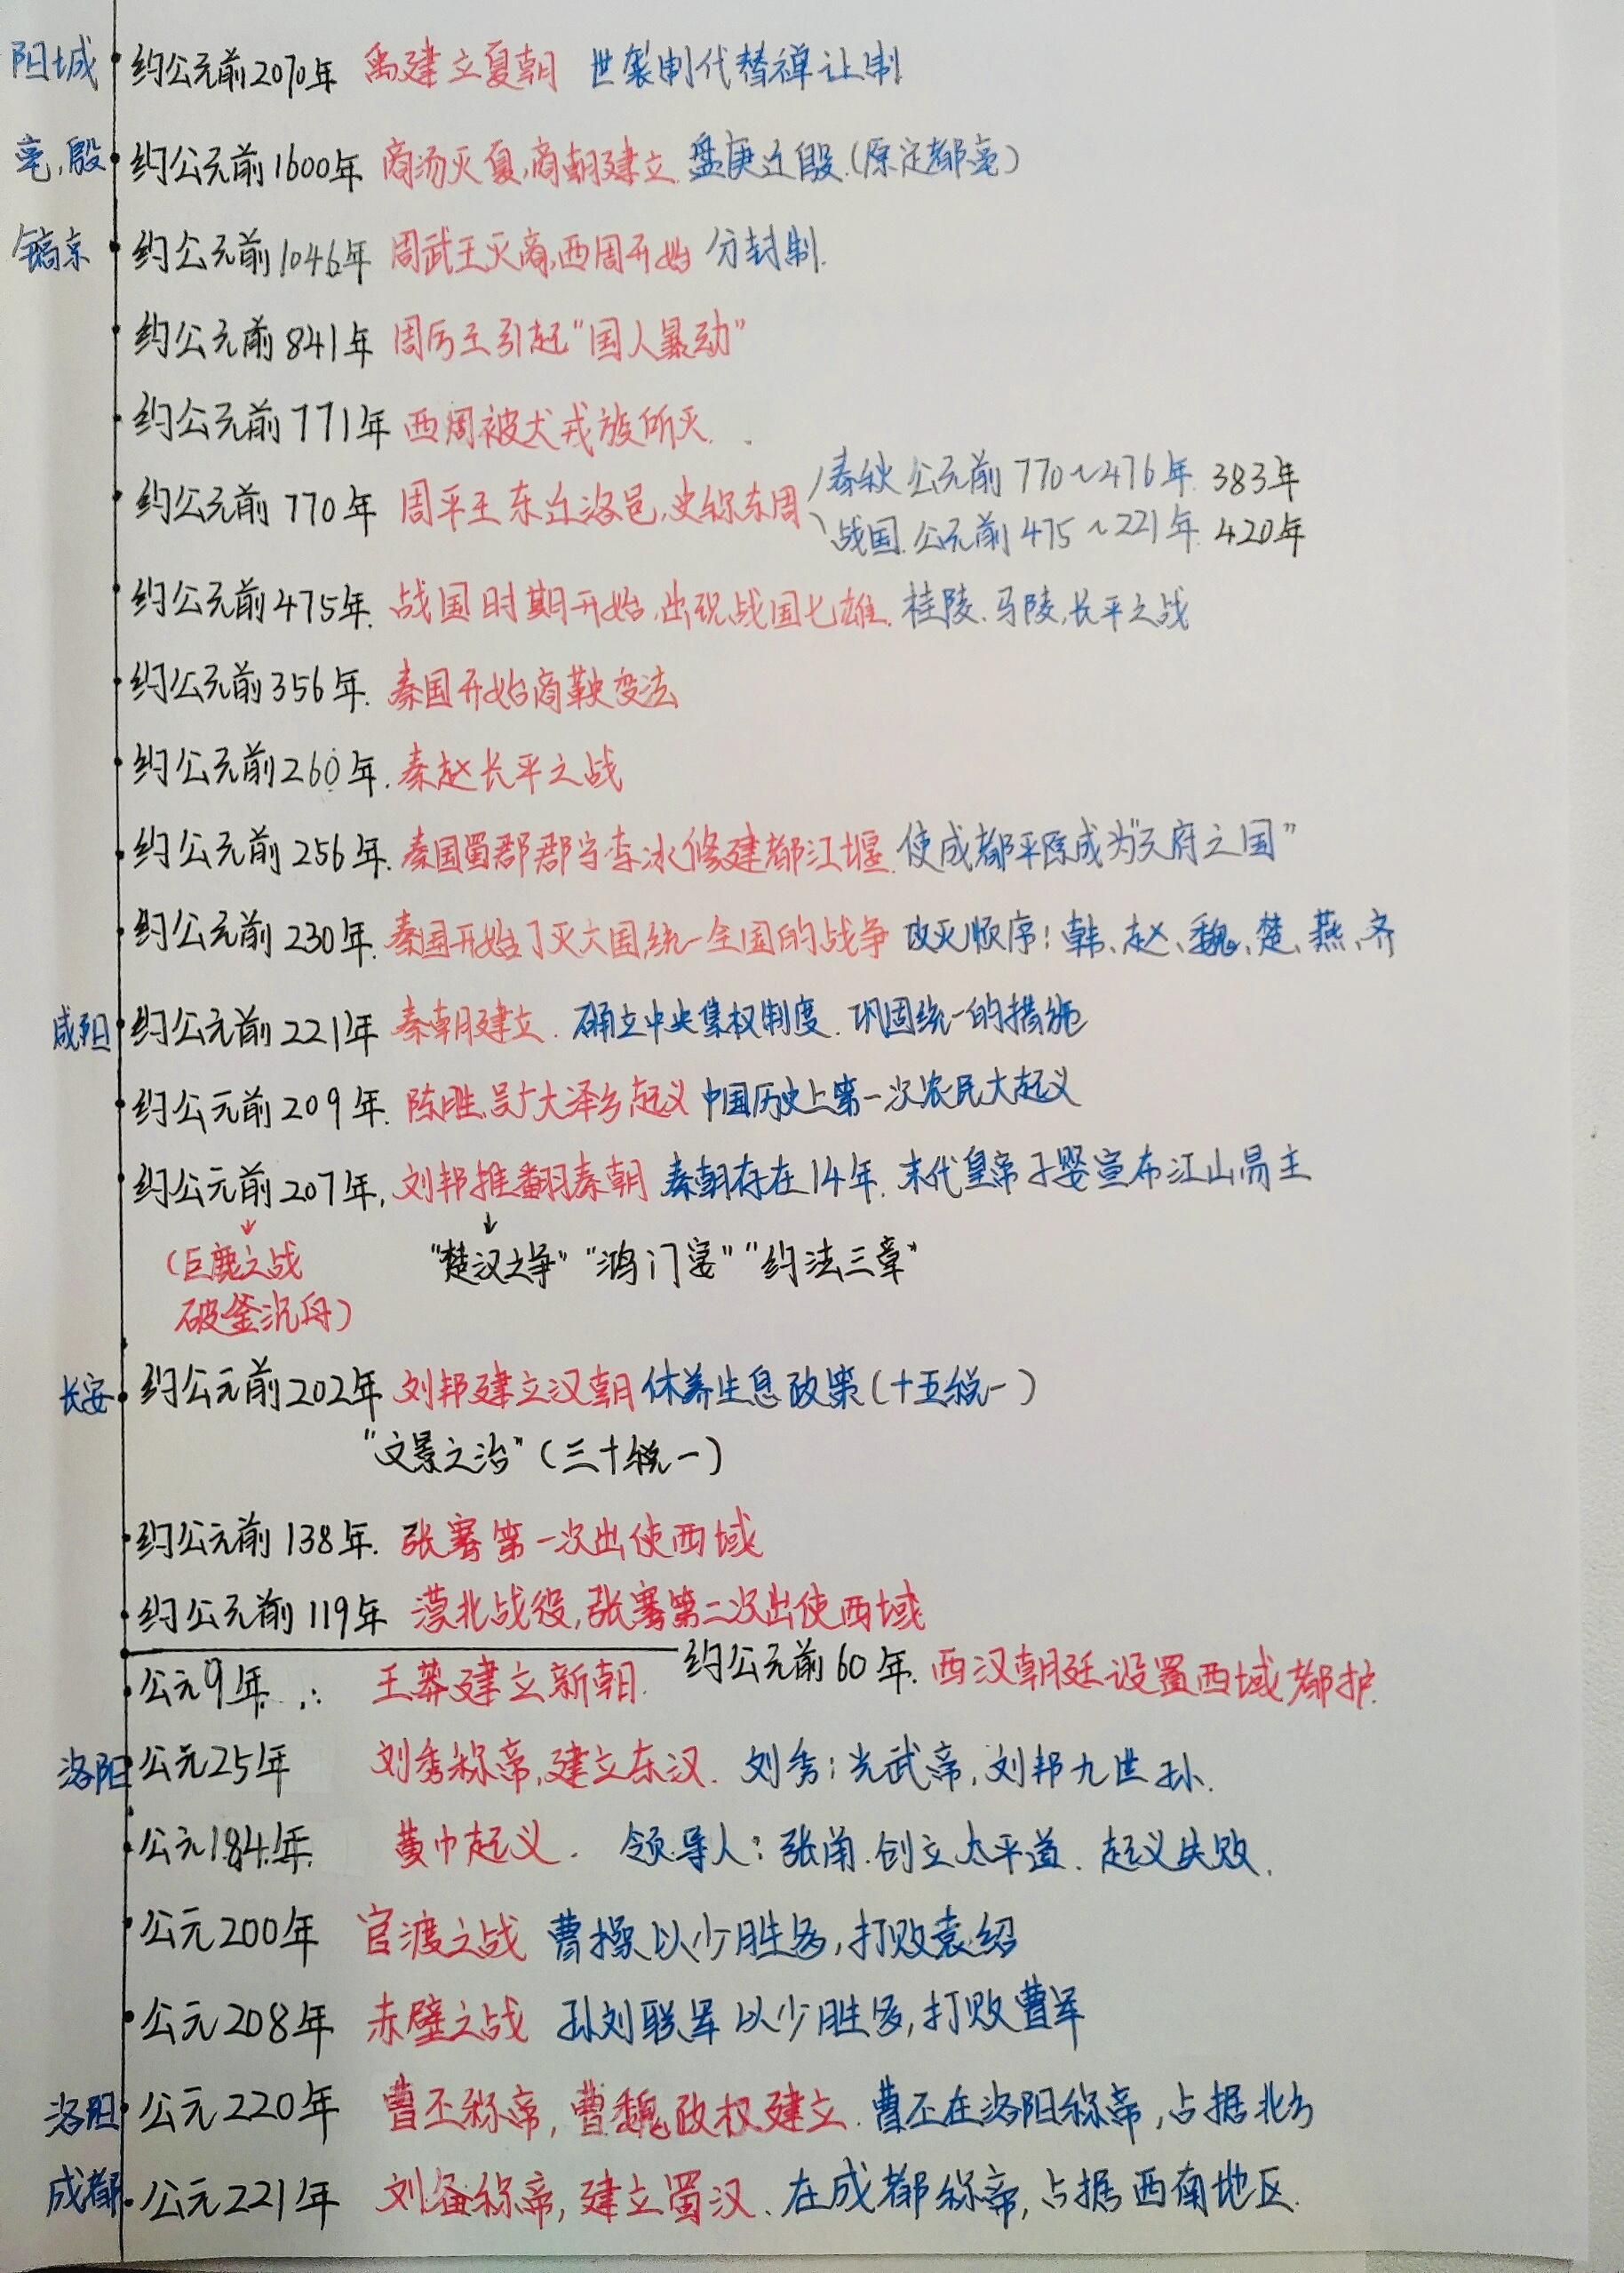 阳城 约公元前2070年 禹建立夏朝 世袭制代替禅让制
亳,殷 约公元前1600年 商汤灭夏,商朝建立.盘庚迁殷.(原定都亳)
镐京 约公元前1046年 周武王灭商,西周开始 分封制.
约公元前841年 周厉王引起"国人暴动"
约公元前771年 西周被犬戎族所灭.
春秋 公元前770~476年. 383年
约公元前770年 周平王东迁洛邑,史称东周
战国.公元前475~221年. 420年
约公元前475年. 战国时期开始,出现战国七雄. 桂陵.马陵,长平之战
约公元前356年. 秦国开始商鞅变法
约公元前260年. 秦赵长平之战
约公元前256年. 秦国蜀郡郡守李冰修建都江堰. 使成都平原成为"天府之国"
约公元前230年. 秦国开始了灭六国统一全国的战争 攻灭顺序:韩、赵、魏、楚、燕、齐
咸阳 约公元前221年 秦朝建立. 确立中央集权制度. 巩固统一的措施
约公元前209年. 陈胜,吴广大泽乡起义 中国历史上第一次农民大起义
约公元前207年, 刘邦推翻秦朝 秦朝存在14年. 末代皇帝子婴宣布江山易主
(巨鹿之战 "楚汉之争" "鸿门宴" "约法三章"
破釜沉舟)
长安 约公元前202年 刘邦建立汉朝 休养生息政策(十五税一)
"文景之治"(三十税一)
约公元前138年. 张骞第一次出使西域
约公元前119年 漠北战役,张骞第二次出使西域
约公元前60年. 西汉朝廷设置西域都护.
公元9年 王莽建立新朝.
洛阳 公元25年 刘秀称帝,建立东汉. 刘秀:光武帝,刘邦九世孙.
公元184年. 黄巾起义. 领导人:张角.创立太平道. 起义失败.
公元200年 官渡之战 曹操以少胜多,打败袁绍
公元208年 赤壁之战 孙刘联军以少胜多,打败曹军
洛阳 公元220年 曹丕称帝,曹魏政权建立.曹丕在洛阳称帝,占据北方
成都 公元221年 刘备称帝,建立蜀汉.在成都称帝,占据西南地区.